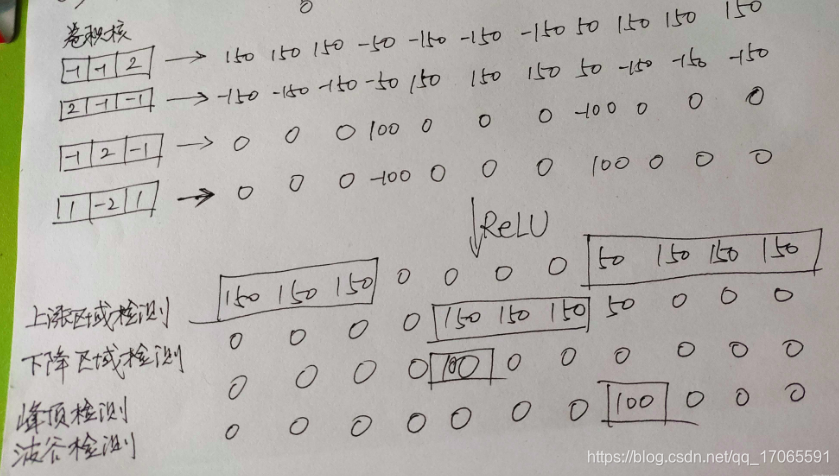 卷积核
-1 -1 2 → 150 150 150 -50 -150 -150 -150 50 150 150 150
2 -1 -1 → -150 -150 -150 -50 150 150 150 50 -150 -150 -150
-1 2 -1 → 0 0 0 100 0 0 0 -100 0 0 0
1 -2 1 → 0 0 0 -100 0 0 0 100 0 0 0
↓ReLU
上涨区域检测 150 150 150 0 0 0 0 50 150 150 150
下降区域检测 0 0 0 0 150 150 150 50 0 0 0
峰顶检测 0 0 0 0 100 0 0 0 0 0 0
波谷检测 0 0 0 0 0 0 0 100 0 0 0
https://blog.csdn.net/qq_17065591